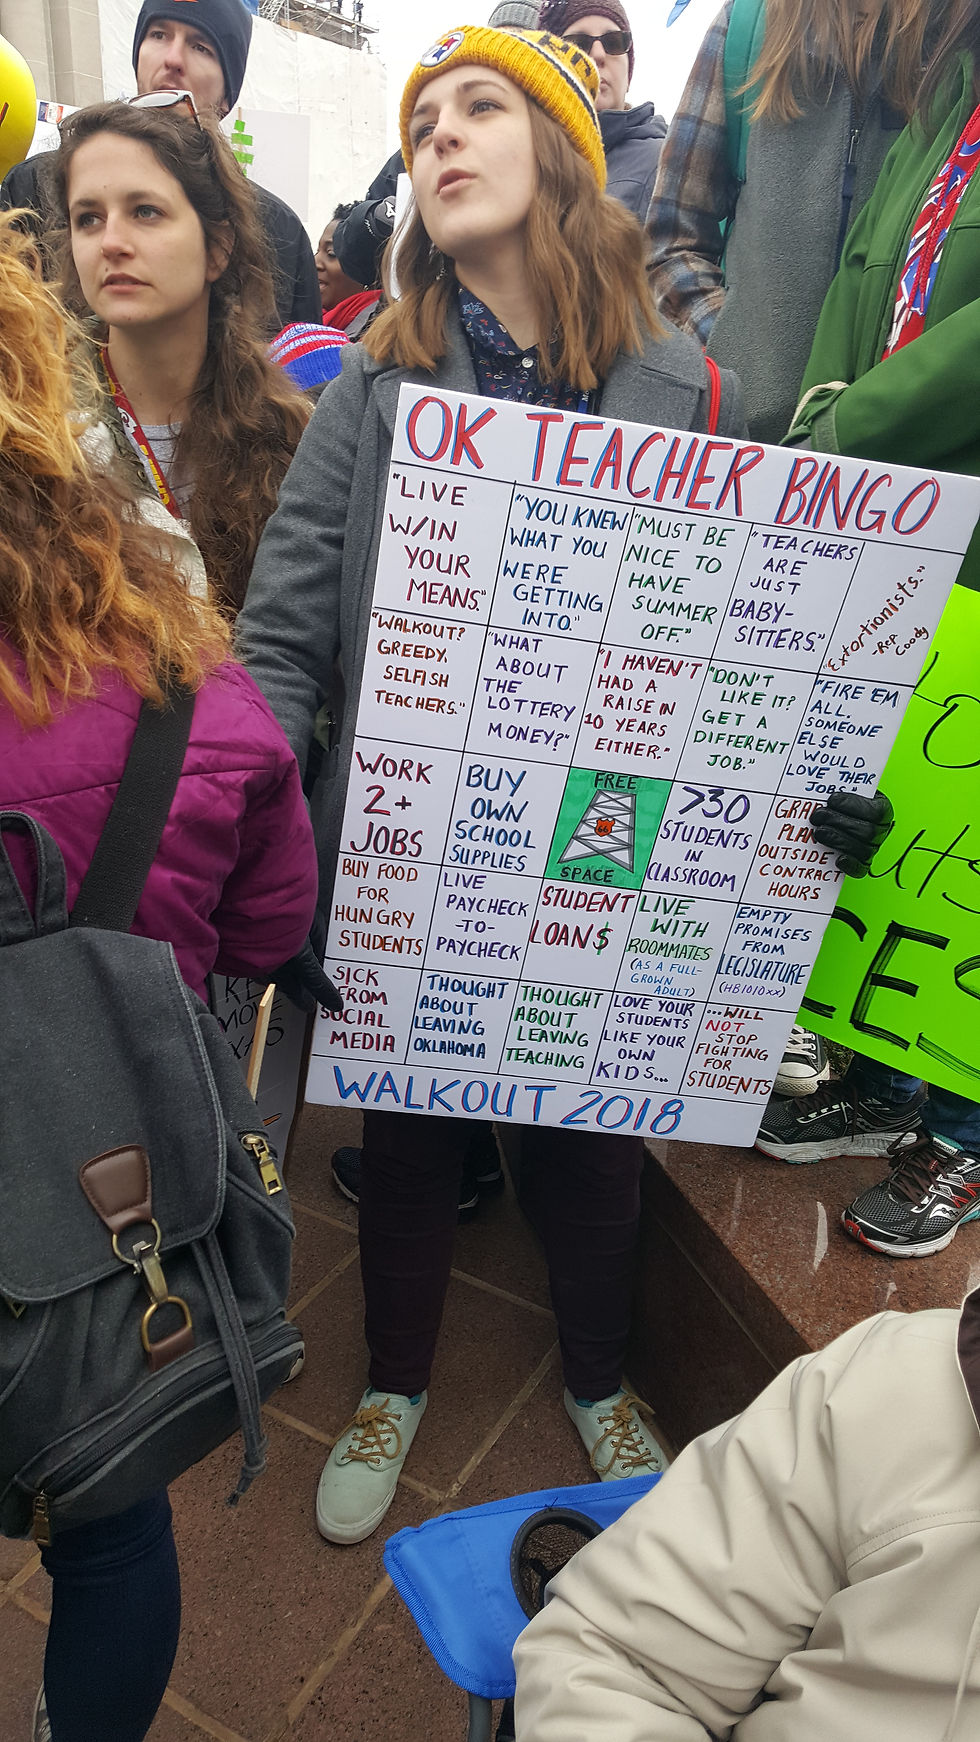 OK TEACHER BINGO
"LIVE
W/IN
YOUR
MEANS."
"YOU KNEW
WHAT YOU
WERE
GETTING
INTO."
"MUST BE
NICE TO
HAVE
SUMMER
OFF."
"TEACHERS
ARE
JUST
BABY-
SITTERS."
"Extortionists."
-Rep
Coody
"WALKOUT?
GREEDY,
SELFISH
TEACHERS."
"WHAT
ABOUT
THE
LOTTERY
MONEY?"
"I HAVEN'T
HAD A
RAISE IN
10 YEARS
EITHER."
"DON'T
LIKE IT?
GET A
DIFFERENT
JOB."
"FIRE 'EM
ALL.
SOMEONE
ELSE
WOULD
LOVE THEIR
JOBS."
WORK
2+
JOBS
BUY
OWN
SCHOOL
SUPPLIES
FREE
66
SPACE
>30
STUDENTS
IN
CLASSROOM
GRA
PLAN
OUTSIDE
CONTRACT
HOURS
BUY FOOD
FOR
HUNGRY
STUDENTS
LIVE
PAYCHECK
-TO-
PAYCHECK
STUDENT
LOAN$
LIVE
WITH
ROOMMATES
(AS A FULL-
GROWN
ADULT)
EMPTY
PROMISES
FROM
LEGISLATURE
(HB1010xx)
SICK
FROM
SOCIAL
MEDIA
THOUGHT
ABOUT
LEAVING
OKLAHOMA
THOUGHT
ABOUT
LEAVING
TEACHING
LOVE YOUR
STUDENTS
LIKE YOUR
OWN
KIDS...
...WILL
NOT
STOP
FIGHTING
FOR
STUDENTS
WALKOUT 2018